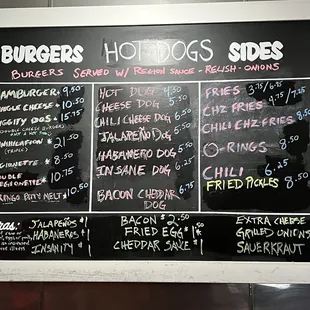 BURGERS HOT DOGS SIDES
BURGERS SERVED W/ REGION SAUCE - RELISH - ONIONS
HAMBURGER 9.50
CHEESE 10.50
DOS 10.75
DOUBLE CHEESE BURGERS
21.50
8.50
DOUBLE
10.50
PATTY MELT 10.50
HOT DOG 4.50
CHEESE DOG 5.50
CHILI CHEESE DOG 6.50
JALAPEÑO DOG 5.50
HABANERO DOG 5.50
INSANE DOG 6.25
BACON CHEDDAR DOG 6.75
FRIES 3.75/6.25
CHZ FRIES 4.75/7.25
CHILI CHZ FRIES 8.50
O-RINGS 8.50
CHILI 6.25
FRIED PICKLES 8.50
JALAPEÑOS $1
HABANEROS $1
INSANITY $1
BACON $2.50
FRIED EGG $1.50
CHEDDAR SAUCE $1
EXTRA CHEESE
GRILLED ONIONS
SAUERKRAUT